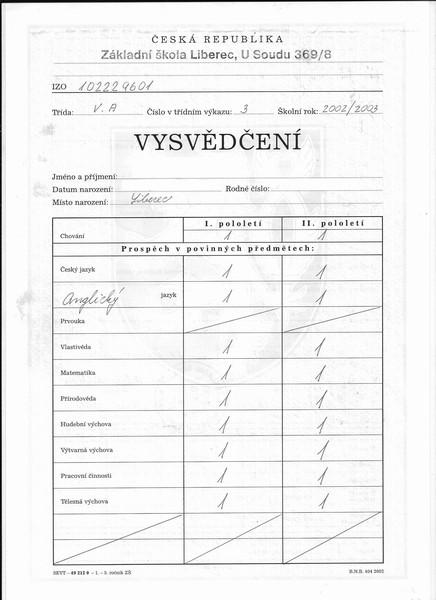 ČESKÁ REPUBLIKA
Základní škola Liberec, U Soudu 369/8
IZO 102229601
Třída: V. A Číslo v třídním výkazu: 3 Školní rok: 2002/2003
VYSVĚDČENÍ
Jméno a příjmení:
Datum narození: Rodné číslo:
Místo narození: Liberec
I. pololetí II. pololetí
Chování 1 1
Prospěch v povinných předmětech:
Český jazyk 1 1
Anglický jazyk 1 1
Prvouka
Vlastivěda 1 1
Matematika 1 1
Přírodověda 1 1
Hudební výchova 1 1
Výtvarná výchova 1 1
Pracovní činnosti 1 1
Tělesná výchova 1 1
SEVT – 49 212 0 – 1. – 5. ročník ZŠ B.N.B. 404 2002